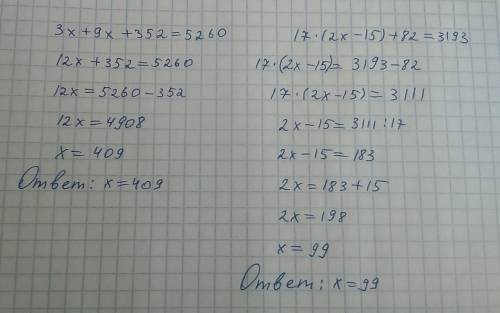 3x+9x+352=5260
12x+352=5260
12x=5260-352
12x=4908
x=409
Ответ: x=409
17·(2x-15)+82=3193
17·(2x-15)=3193-82
17·(2x-15)=3111
2x-15=3111:17
2x-15=183
2x=183+15
2x=198
x=99
Ответ: x=99